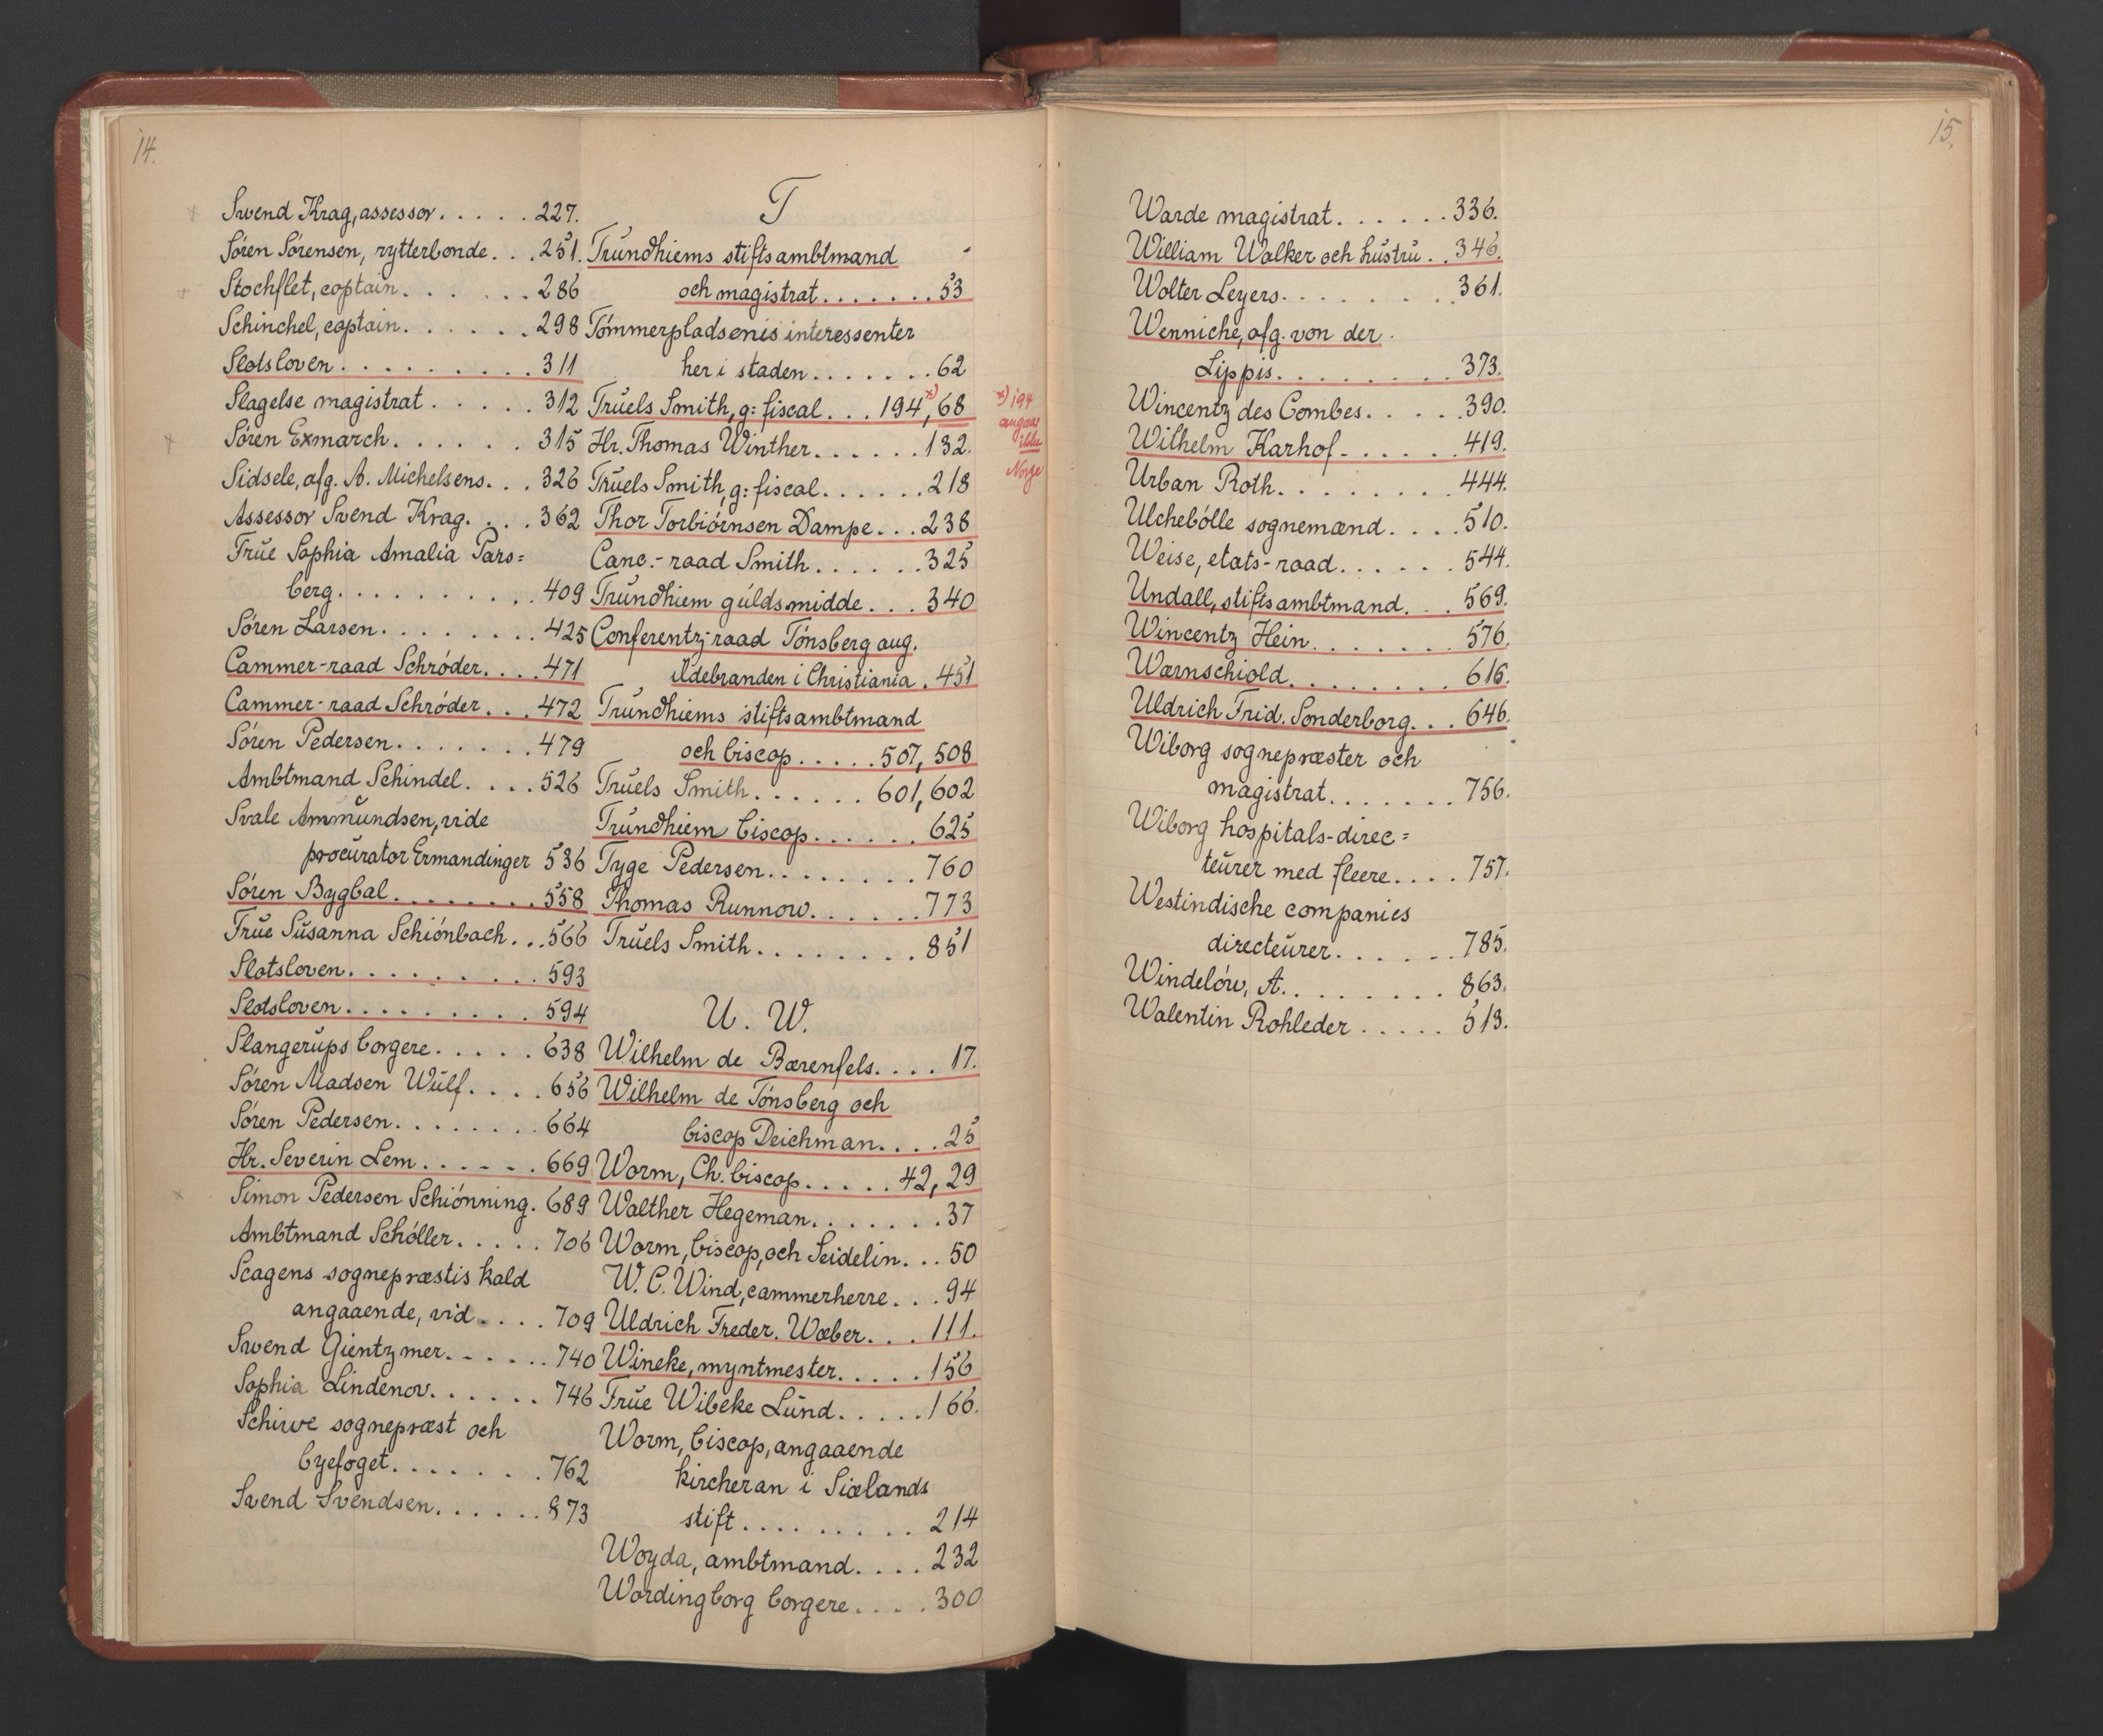 14.
Swend Krag, assessor. . . . . 227.
Søren Sørensen, rytterbonde. . . 251.
Stochflet, captain. . . . . . 286
Schinchel, captain. . . . . . 298
Slotsloven. . . . . . . . . 311
Slagelse magistrat . . . . . 312
Søren Exmarch. . . . . . 315
Sidsele, afg. A. Michelsens. . . 326
Assessor Svend Krag. . . . 362
Frue Sophia Amalia Pars=
berg. . . . . . . . . . 409
Søren Larsen. . . . . . . . 425
Cammer-raad Schrøder. . . . 471
Cammer-raad Schrøder. . . 472
Søren Pedersen. . . . . . . 479
Ambtmand Schindel. . . . . 526
Svale Ammundsen, vide
procurator Ermandinger 536
Søren Bygbal. . . . . . . . . 558
Frue Susanna Schiønbach. . . 566
Slotsloven. . . . . . . . . 593
Slotsloven. . . . . . . . . 594
Slangerups borgere. . . . . 638
Søren Madsen Wulf. . . . . 656
Søren Pedersen. . . . . . . . 664
Hr. Severin Lem. . . . . . 669
Simon Pedersen Schiønning. 689
Ambtmand Schøller. . . . . 706
Scagens sognepræstis kald
angaaende, vid. . . . . 709
Swend Gientzmer. . . . . . 740
Sophia Lindenov. . . . . . 746
Schirve sognepræst och
byefoget. . . . . . . 762
Svend Svendsen. . . . . . 873
T
Trundhiems stiftsambtmand
och magistrat. . . . . . . 53
Tømmerpladsenis interessenter
her i staden. . . . . . . 62
Truels Smith, g: fiscal. . . 194,*) 68
Hr. Thomas Winther. . . . . . 132.
Truels Smith, g: fiscal. . . . . . 218
Thor Torbiørnsen Dampe. . . 238
Canc.-raad Smith. . . . . . 325
Trundhiem guldsmidde. . . 340
Conferentz-raad Tønsberg aug.
ildebranden i Christiania . 451
Trundhiems stiftsambtmand
och biscop. . . . . 507, 508
Truels Smith. . . . . . 601, 602
Trundhiem biscop. . . . . . 625
Tyge Pedersen. . . . . . . . 760
Thomas Runnow. . . . . . 773
Truels Smith. . . . . . . . 851
U. W.
Wilhelm de Bærenfels. . . . 17.
Wilhelm de Tønsberg och
biscop Deichman. . . . 25
Worm, Ch. biscop. . . . . 42, 29
Walther Hegeman. . . . . . . 37
Worm, biscop, och Seidelin. . . 50
W. C. Wind, cammerherre. . . 94
Uldrich Freder. Wæber. . . 111.
Wineke, myntmester. . . . . 156
Frue Wibeke Lund. . . . . 166.
Worm, biscop, angaaende
kircheran i Siælands
stift. . . . . . . . . 214
Woyda, ambtmand. . . . 232
Wordingborg borgere. . . . 300
*) 194
angaar
ikke
Norge
15.
Warde magistrat. . . . . . 336.
William Walker och hustru. . 346.
Wolter Leyers. . . . . . . . 361.
Wenniche, afg. von der
Lippis. . . . . . . . 373.
Wincentz des Combes. . . . . 390.
Wilhelm Karhof. . . . . . 419.
Urban Roth. . . . . . . . 444.
Ulchebølle sognemænd. . . . 510.
Weise, etats-raad. . . . . . 544.
Undall, stiftsambtmand. . . 569.
Wincentz Hein. . . . . . . 576.
Wærnschiold. . . . . . . . 616.
Uldrich Frid. Sonderborg. . . 646.
Wiborg sognepræster och
magistrat. . . . . . . 756.
Wiborg hospitals-direc=
teurer med fleere. . . . 757.
Westindische companies
directeurer. . . . . . 785.
Windeløw, A. . . . . . . . 863.
Walentin Rohleder . . . . . 513.